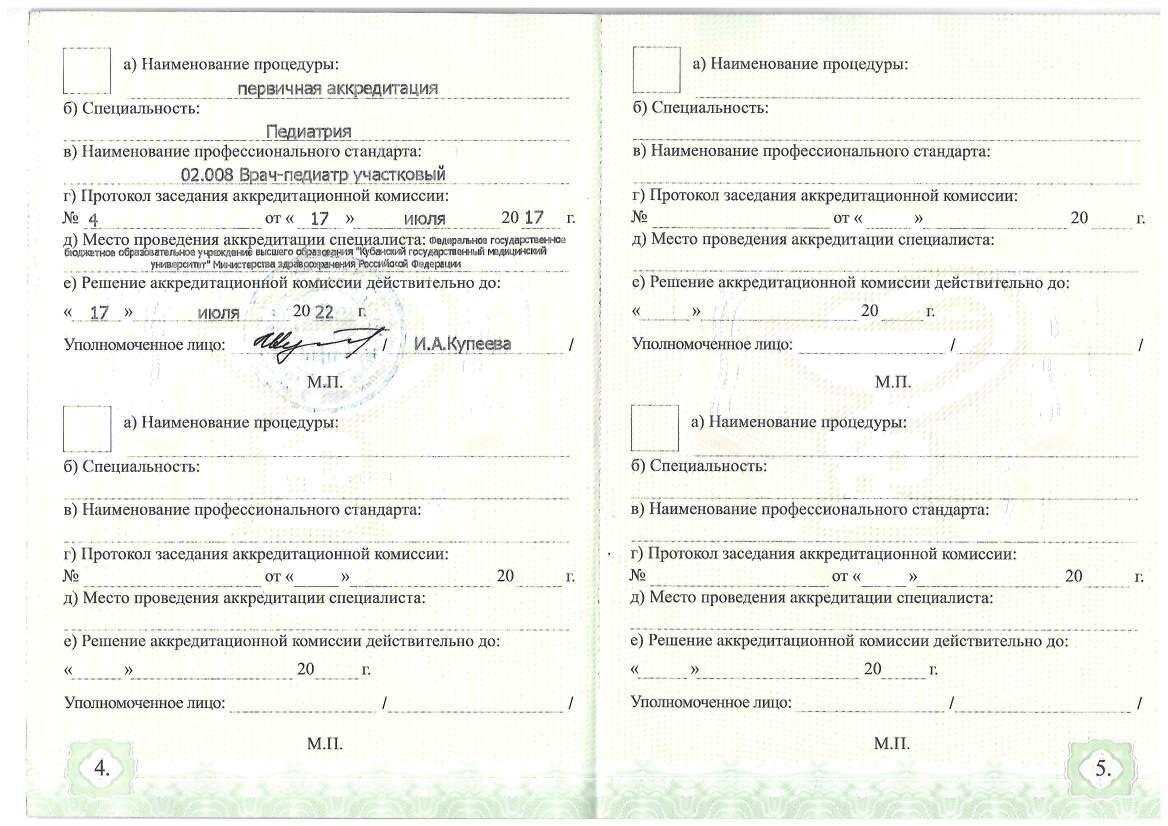 а) Наименование процедуры:
первичная аккредитация
б) Специальность:
Педиатрия
в) Наименование профессионального стандарта:
02.008 Врач-педиатр участковый
г) Протокол заседания аккредитационной комиссии:
№ 4 от « 17 » июля 20 17 г.
д) Место проведения аккредитации специалиста: Федеральное государственное
бюджетное образовательное учреждение высшего образования "Кубанский государственный медицинский
университет" Министерства здравоохранения Российской Федерации
е) Решение аккредитационной комиссии действительно до:
« 17 » июля 20 22 г.
Уполномоченное лицо: / И.А.Купеева /
М.П.
а) Наименование процедуры:
б) Специальность:
в) Наименование профессионального стандарта:
г) Протокол заседания аккредитационной комиссии:
№ от « » 20 г.
д) Место проведения аккредитации специалиста:
е) Решение аккредитационной комиссии действительно до:
« » 20 г.
Уполномоченное лицо: / /
М.П.
4.
а) Наименование процедуры:
б) Специальность:
в) Наименование профессионального стандарта:
г) Протокол заседания аккредитационной комиссии:
№ от « » 20 г.
д) Место проведения аккредитации специалиста:
е) Решение аккредитационной комиссии действительно до:
« » 20 г.
Уполномоченное лицо: / /
М.П.
а) Наименование процедуры:
б) Специальность:
в) Наименование профессионального стандарта:
г) Протокол заседания аккредитационной комиссии:
№ от « » 20 г.
д) Место проведения аккредитации специалиста:
е) Решение аккредитационной комиссии действительно до:
« » 20 г.
Уполномоченное лицо: / /
М.П.
5.